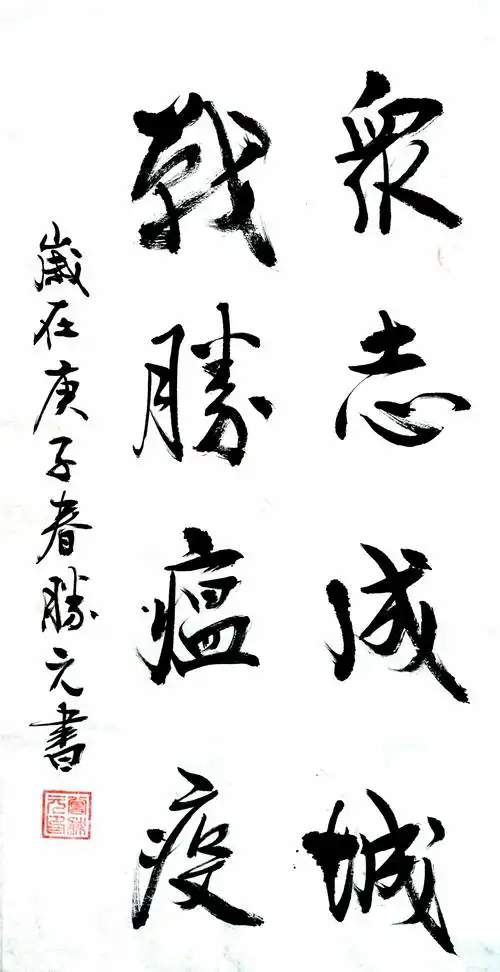 衆志成城
戰勝瘟疫
歲在庚子春勝元書